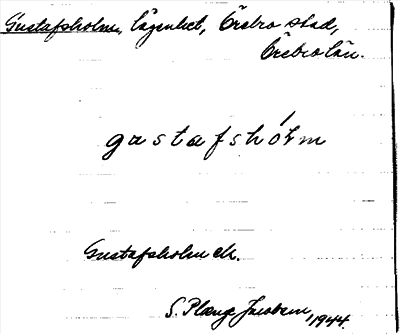 Gustafsholm, lägenhet, Örebro stad,
Örebro län.
gustafshólm
Gustafsholm ek.
S. Plænge Jacobson, 1944